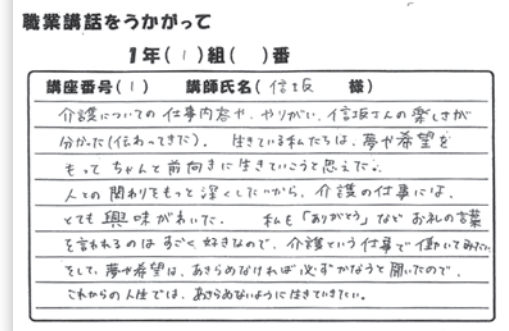 職業講話をうかがって
1年(1)組( )番
講座番号(1) 講師氏名(信坂 様)
介護についての仕事内容や、やりがい、信坂さんの楽しさが
分かった(伝わってきた)。 生きている私たちは、夢や希望を
もって ちゃんと前向きに生きていこうと思えた。
人との関わりをもっと深くしたいから、介護の仕事には、
とても興味がわいた。 私も「ありがとう」など お礼の言葉
を言われるのはすごく好きなので、介護という仕事で働いてみたい
そして、夢や希望は、あきらめなければ必ずかなうと聞いたので、
これからの人生では、あきらめないように生きていきたい。